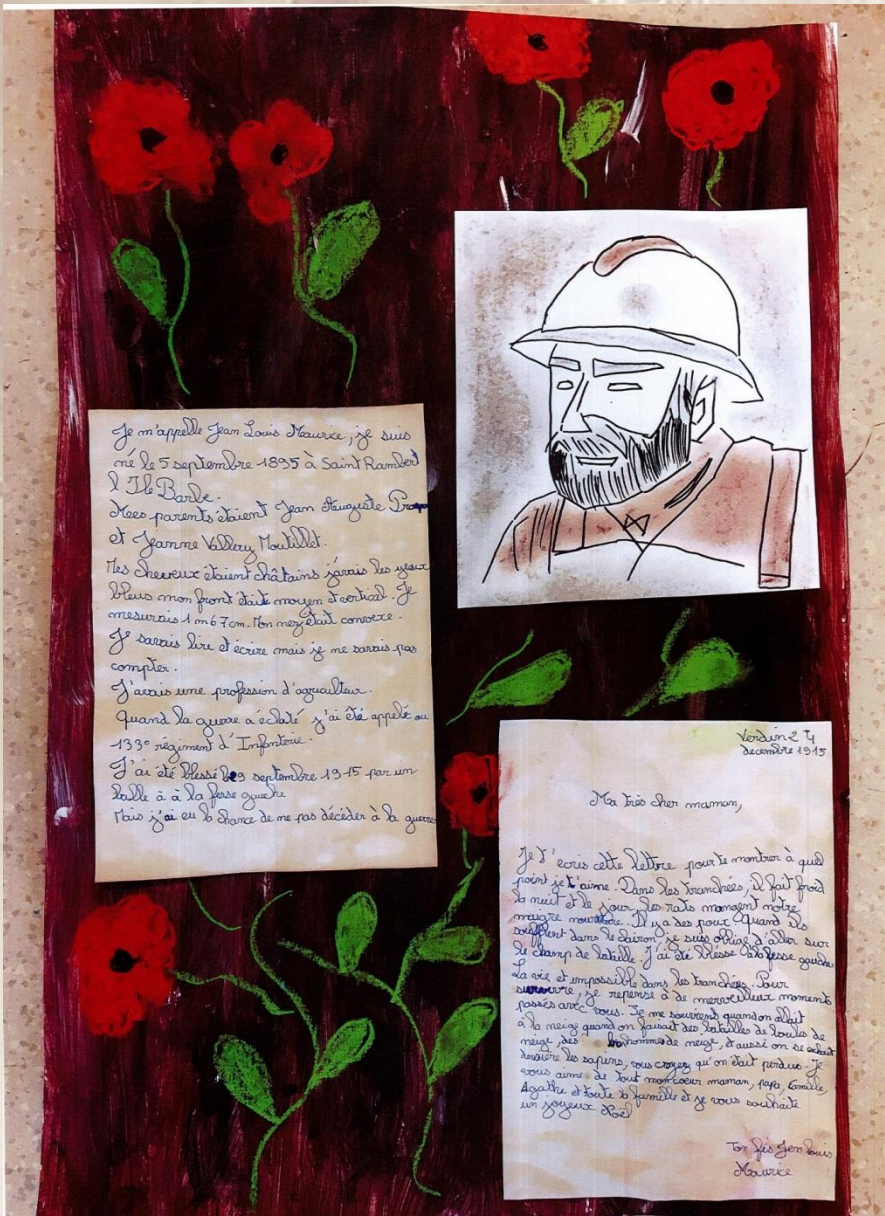 Je m'appelle Jean Louis Maurice, je suis
né le 5 septembre 1895 à Saint Rambert
l Ile Barbe.
Mes parents étaient Jean Auguste
et Jeanne Vallery Moutillet.
Mes cheveux étaient châtains j'avais les yeux
bleus mon front était moyen et vertical. Je
mesurais 1 m 67 cm. Mon nez était convexe.
Je savais lire et écrire mais je ne savais pas
compter.
J'avais une profession d'agriculteur.
Quand la guerre a éclaté j'ai été appelé au
133e régiment d'Infanterie.
J'ai été blessé le 9 septembre 1915 par un
balle à à la fesse gauche
Mais j'ai eu la chance de ne pas décéder à la guerre
Verdin 24
decembre 1915
Ma très cher maman,
Je t'ecris cette lettre pour te montrer à quel
point je t'aime. Dans les tranchées, il fait froid
la nuit et le jour, les rats mangent notre
maigre nourriture. Il y a des poux. Quand ils
soufflent dans le clairon je suis obligé d'aller sur
le champ de bataille. J'ai été blessé à la fesse gauche.
La vie et impossible dans les tranchées. Pour
survivre, je repense à de merveilleux moments
passés avec vous. Je me souviens quand on allait
à la neige quand on faisait des batailles de boules de
neige, des bonhommes de neige, et aussi on se cachait
derrière les sapins, vous croyez qu'on était perdus. Je
vous aime de tout mon coeur maman, papa, Camille,
Agathe et toute la famille et je vous souhaite
un joyeux Noël
Ton fis Jean louis
Maurice